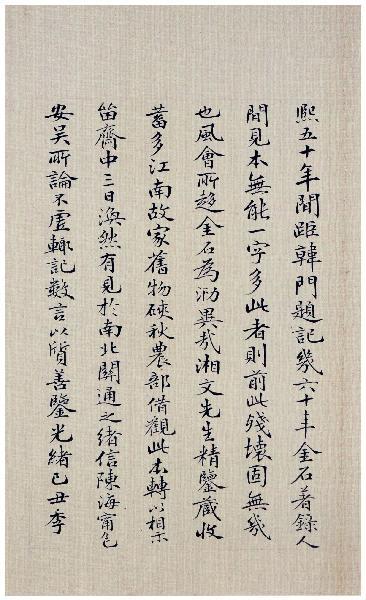 熙五十年間距韓門題記幾六十年金石著錄人
間見本無能一字多此者則前此殘壞固無幾
也風會所趨金石為劢異哉湘文先生精鑒藏收
蓄多江南故家舊物硤秋農部借觀此本轉以相示
留齋中三日渙然有見於南北關通之緒信陳海甯包
安吳所論不虛輒記數言以質善鑒光緒己丑季